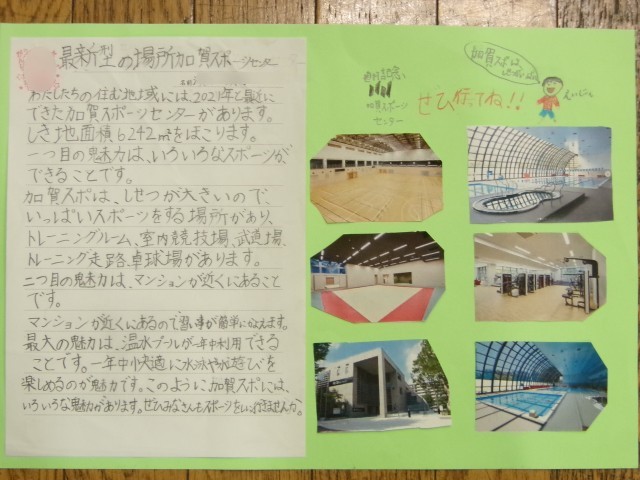 最新型の場所加賀スポーツセンター
わたしたちの住む地域には、2021年と最近に
できた加賀スポーツセンターがあります。
しき地面積6242㎡をほこります。
一つ目の魅力は、いろいろなスポーツが、
できることです。
加賀スポは、しせつが大きいので
いっぱいスポーツをする場所があり、
トレーニングルーム、室内競技場、武道場、
トレーニング走路、卓球場があります。
二つ目の魅力は、マンションが近くにあること
です。
マンションが近くにあるので習い事が簡単に
最大の魅力は、温水プールが一年中利用できる
ことです。一年中快適に水泳や水遊びを
楽しめるのが魅力です。このように加賀スポには、
いろいろな魅力があります。ぜひみなさんもスポーツをしに行きませんか。
加賀スポは、
加賀スポーツ
センター
ぜひ行ってね!!